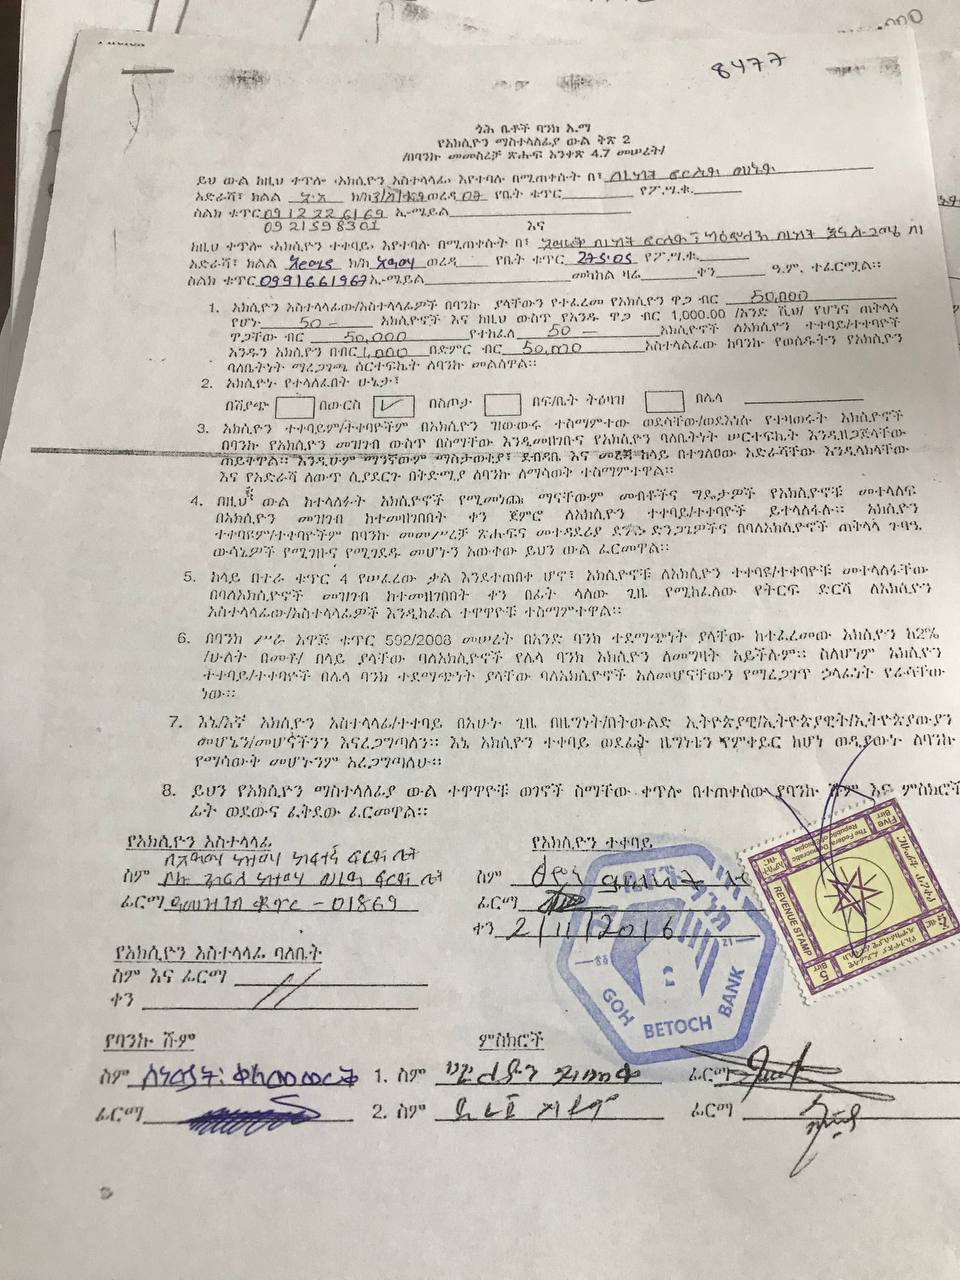 8477
ጎሕ ቤቶች ባንክ አ.ማ
የአክሲዮን ማስተላለፊያ ውል ቅጽ 2
/በባንኩ መመስረቻ ጽሑፍ አንቀጽ 4.7 መሠረት/
ይህ ውል ከዚህ ቀጥሎ ‹አክሲዮን አስተላላፊ› እየተባሉ በሚጠቀሱት በ፣
አድራሻ፣ ክልል አ.አ ክ/ከ ወረዳ 07 የቤት ቁጥር የፖ.ሣ.ቁ.
ስልክ ቁጥር 0912226169 ኢ-ሜይል
0921598301 እና
ከዚህ ቀጥሎ ‹አክሲዮን ተቀባይ› እየተባሉ በሚጠቀሱት በ፣
አድራሻ፣ ክልል ክ/ከ ወረዳ የቤት ቁጥር የፖ.ሣ.ቁ.
ስልክ ቁጥር 0991661967 ኢ-ሜይል መካከል ዛሬ ቀን ዓ.ም. ተፈርሟል።
1. አክሲዮን አስተላላፊው/አስተላላፊዎች በባንኩ ያላቸውን የተፈረመ የአክሲዮን ዋጋ ብር 50,000
የሆነ 50 – አክሲዮኖች እና ከዚህ ውስጥ የአንዱ ዋጋ ብር 1,000.00 /አንድ ሺህ/ የሆነና ጠቅላላ
ዋጋቸው ብር 50,000 የተከፈለ 50 – አክሲዮኖች ለአክሲዮን ተቀባይ/ተቀባዮች
አንዱን አክሲዮን በብር 1,000 በድምር ብር 50,000 አስተላልፈው ከባንኩ የወሰዱትን የአክሲዮን
ባለቤትነት ማረጋገጫ ሰርተፍኬት ለባንኩ መልሰዋል።
2. አክሲዮኑ የተላለፈበት ሁኔታ፣
በሽያጭ በውርስ ✓ በስጦታ በፍ/ቤት ትዕዛዝ በሌላ
3. አክሲዮን ተቀባይም/ተቀባዮችም በአክሲዮን ዝውውሩ ተስማምተው ወደሳቸው/ወደእነሱ የተዛወሩት አክሲዮኖች
በባንኩ የአክሲዮን መዝገብ ውስጥ በስማቸው እንዲመዘገቡና የአክሲዮን ባለቤትነት ሠርተፍኬት እንዲዘጋጅላቸው
ጠይቀዋል። እንዲሁም ማንኛውም ማስታወቂያ፣ ደብዳቤ እና መረጃ ከላይ በተገለፀው አድራሻቸው እንዲላክላቸው
እና የአድራሻ ለውጥ ሲያደርጉ በቅድሚያ ለባንኩ ለማሳወቅ ተስማምተዋል።
4. በዚህ ውል ከተላለፉት አክሲዮኖች የሚመነጩ ማናቸውም መብቶችና ግዴታዎች የአክሲዮኖቹ መተላለፍ
በአክሲዮን መዝገብ ከተመዘገበበት ቀን ጀምሮ ለአክሲዮን ተቀባይ/ተቀባዮች ይተላለፋሉ። አክሲዮን
ተቀባዩም/ተቀባዮችም በባንኩ መመሥረቻ ጽሑፍና መተዳደሪያ ደንቡ ድንጋጌዎችና በባለአክሲዮኖች ጠቅላላ ጉባዔ
ውሳኔዎች የሚገዙና የሚገደዱ መሆኑን አውቀው ይህን ውል ፈርመዋል።
5. ከላይ በተራ ቁጥር 4 የሠፈረው ቃል እንደተጠበቀ ሆኖ፣ አክሲዮኖቹ ለአክሲዮን ተቀባዩ/ተቀባዮቹ መተላለፋቸው
በባለአክሲዮኖች መዝገብ ከተመዘገበበት ቀን በፊት ላለው ጊዜ የሚከፈለው የትርፍ ድርሻ ለአክሲዮን
አስተላላፊው/አስተላላፊዎች እንዲከፈል ተዋዋዮቹ ተስማምተዋል።
6. በባንክ ሥራ አዋጅ ቁጥር 592/2008 መሠረት በአንድ ባንክ ተደማጭነት ያላቸው ከተፈረመው አክሲዮን ከ2%
/ሁለት በመቶ/ በላይ ያላቸው ባለአክሲዮኖች የሌላ ባንክ አክሲዮን ለመግዛት አይችሉም። ስለሆነም አክሲዮን
ተቀባይ/ተቀባዮች በሌላ ባንክ ተደማጭነት ያላቸው ባለአክሲዮኖች አለመሆናቸውን የማረጋገጥ ኃላፊነት የራሳቸው
ነው።
7. እኔ/እኛ አክሲዮን አስተላላፊ/ተቀባይ በአሁኑ ጊዜ በዜግነት/በትውልድ ኢትዮጵያዊ/ኢትዮጵያዊት/ኢትዮጵያውያን
መሆኔን/መሆናችንን እናረጋግጣለን። እኔ አክሲዮን ተቀባይ ወደፊት ዜግነቴን የምቀይር ከሆነ ወዲያውኑ ለባንኩ
የማሳውቅ መሆኑንም አረጋግጣለሁ።
8. ይህን የአክሲዮን ማስተላለፊያ ውል ተዋዋዮቹ ወገኖች ስማቸው ቀጥሎ በተጠቀሰው የባንኩ ሹም እና ምስክሮች
ፊት ወደውና ፈቅደው ፈርመዋል።
የአክሲዮን አስተላላፊ የአክሲዮን ተቀባይ
ስም ስም
ፊርማ በመዝገብ ቁጥር - 01869 ፊርማ
ቀን 2/11/2016
የአክሲዮን አስተላላፊ ባለቤት
ስም እና ፊርማ
ቀን
GOH BETOCH BANK
The Federal Democratic Republic of Ethiopia
Five Birr
REVENUE STAMP
5 Birr
5 ብር
የባንኩ ሹም ምስክሮች
ስም 1. ስም ፊርማ
ፊርማ 2. ስም ፊርማ